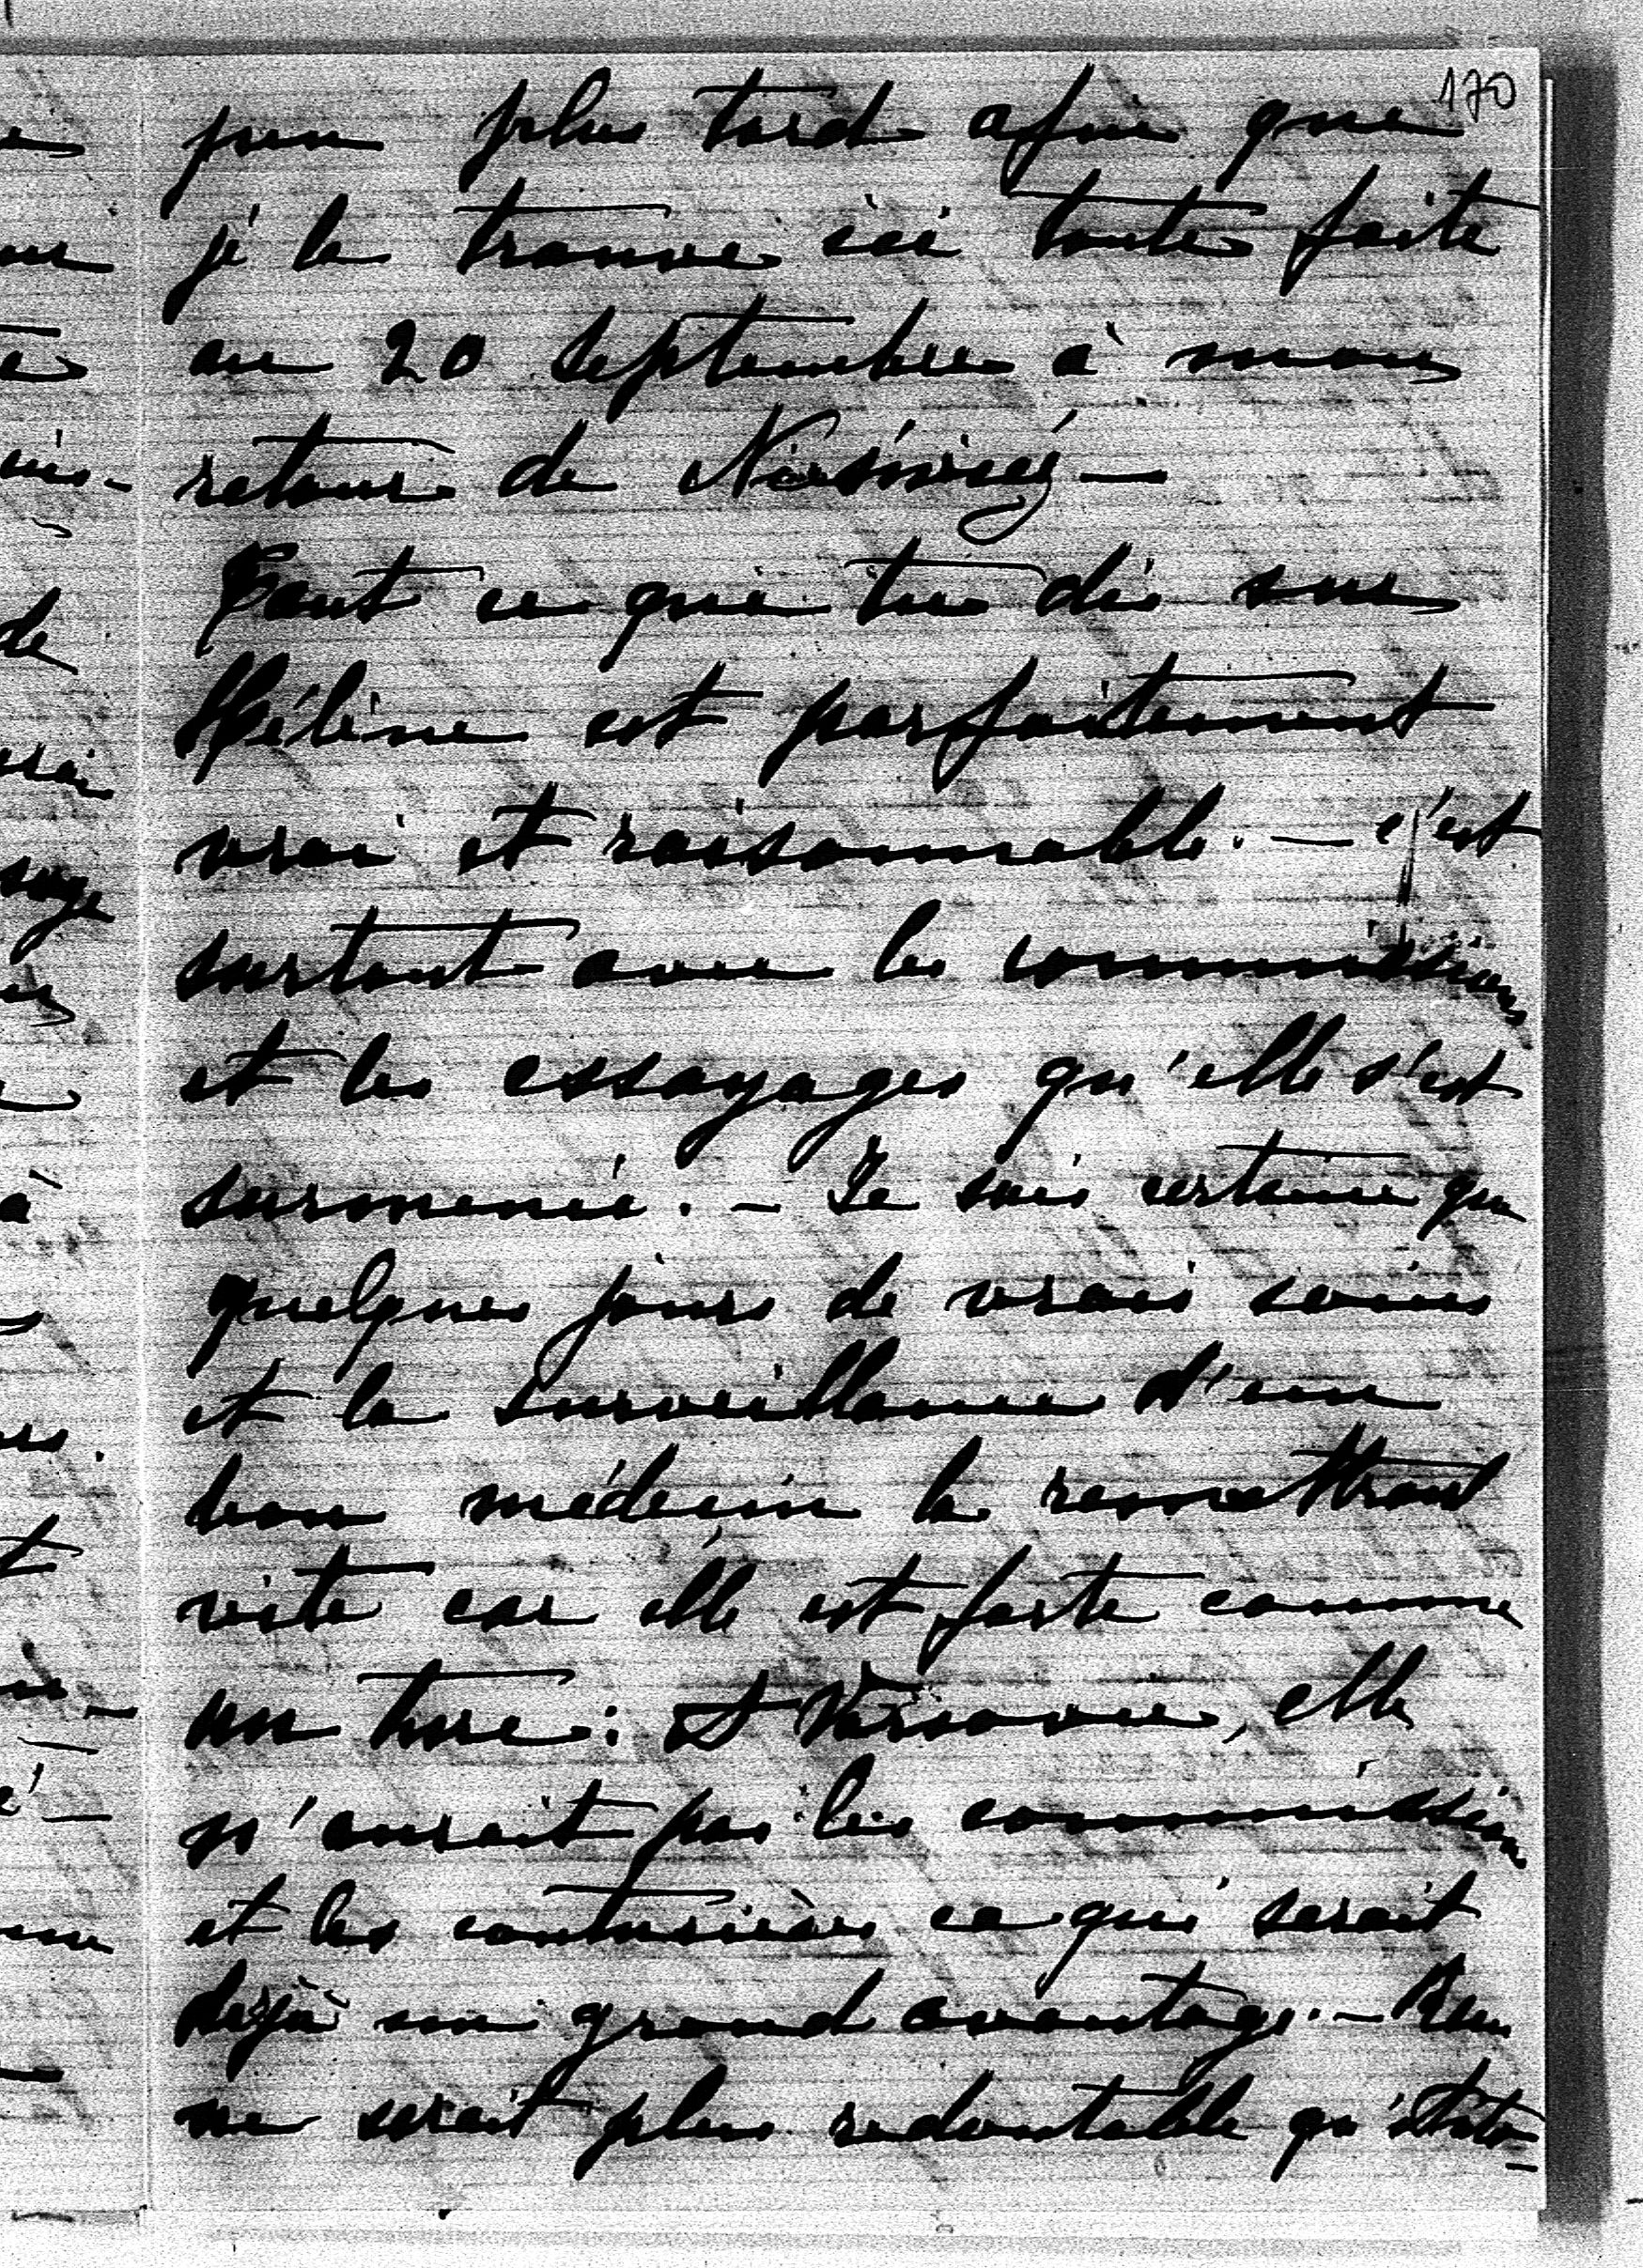 170
peu plus tard afin que
je la trouve ici toute faite
au 20 septembre à mon
retour de
Tout ce que tu dis sur
Hélène est parfaitement
vrai et raisonnable. — c'est
surtout avec les commissions
et les essayages qu'elle s'est
surmenée. — Je suis certaine que
quelques jours de vrais soins
et la surveillance d'un
bon médecin la remettront
vite car elle est forte comme
un turc : A Varsovie, elle
n'aurait pas les commissions
et les couturières ce qui serait
déjà un grand avantage. — Rien
ne serait plus redoutable qu'